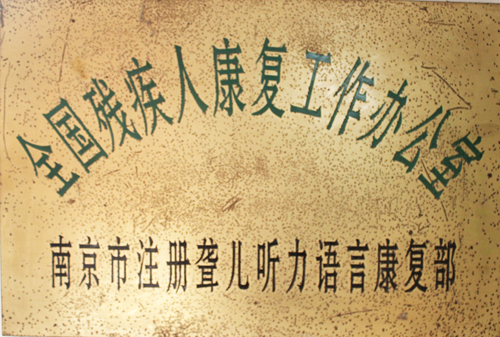 全国残疾人康复工作办公室
南京市注册聋儿听力语言康复部